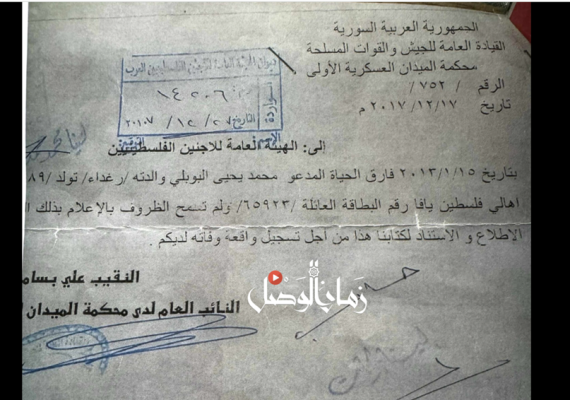 الجمهورية العربية السورية
القيادة العامة للجيش والقوات المسلحة
محكمة الميدان العسكرية الأولى
الرقم / ٧٥٢/
تاريخ ٢٠١٧/١٢/١٧ م
١٤٢٠٦
واردة
التاريخ ٢٠١٧/١٢/٢٧
إلى: الهيئة العامة للاجنين الفلسطينيين
بتاريخ ٢٠١٣/١/١٥ فارق الحياة المدعو محمد يحيى البويلي والدته /رغداء/ تولد /٨٩
اهالي فلسطين يافا رقم البطاقة العائلة /٦٥٩٢٣/ ولم تسمح الظروف بالإعلام بذلك
الإطلاع و الاستناد لكتابنا هذا من أجل تسجيل واقعة وفاته لديكم .
النقيب علي بسام
النائب العام لدى محكمة الميدان
زمان الوصل